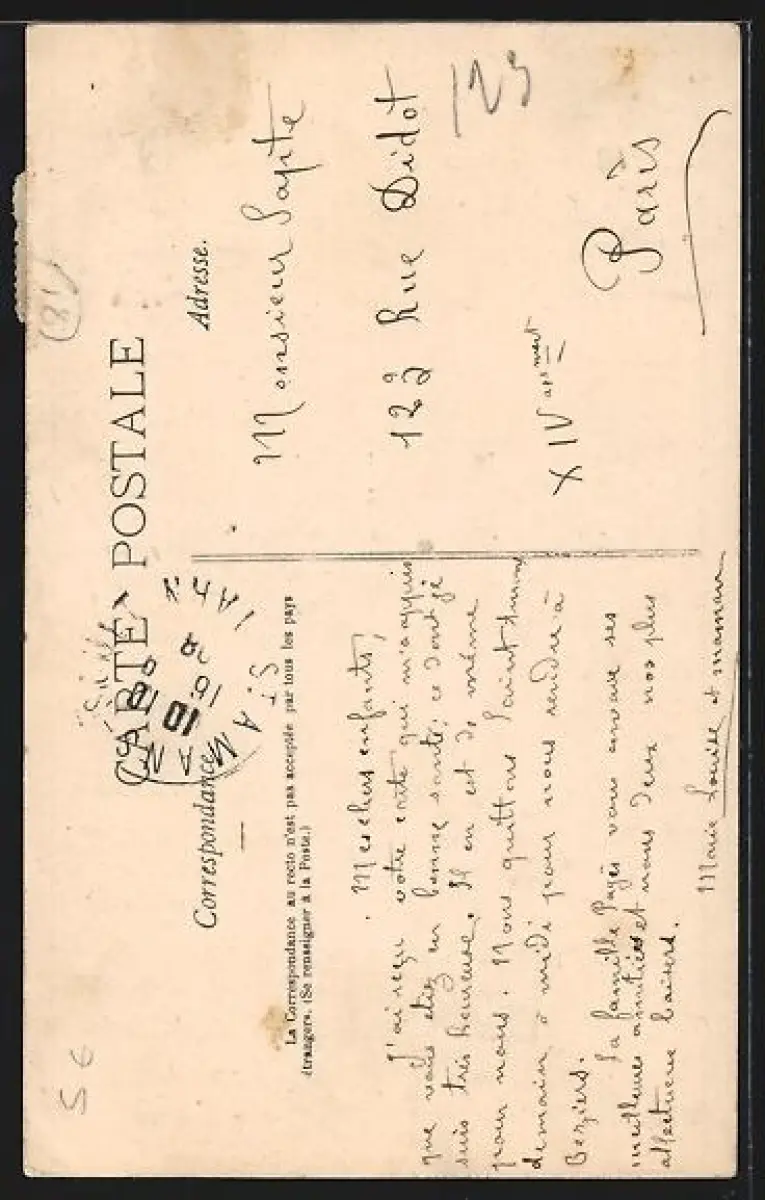 CARTE POSTALE
Correspondance
La Correspondance au recto n'est pas acceptée par tous les pays
étrangers. (Se renseigner à la Poste.)
Mes chers enfants,
J'ai reçu votre carte qui m'a appris
que vous étiez en bonne santé, ce dont je
suis très heureuse. Il en est de même
pour nous. Nous quittons Saint
demain à midi pour nous rendre à
Beziers.
La famille Pagès vous envoie ses
meilleures amitiés et nous deux nos plus
affectueux baisers.
Marie Louise et maman
Adresse.
Monsieur
122 Rue Didot
XIV arr
Paris
123
(81)
5 €